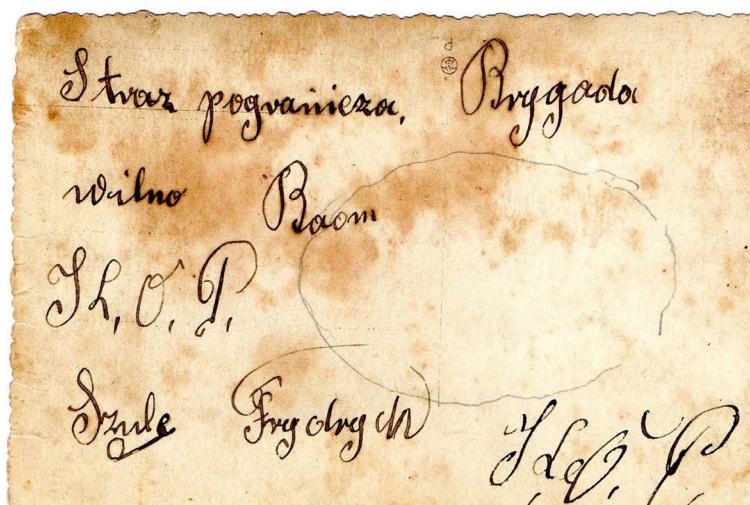 Straz pogranicza, Brygada
Wilno Baon
K, O, P,
Szulc Frydrych
K, O, P